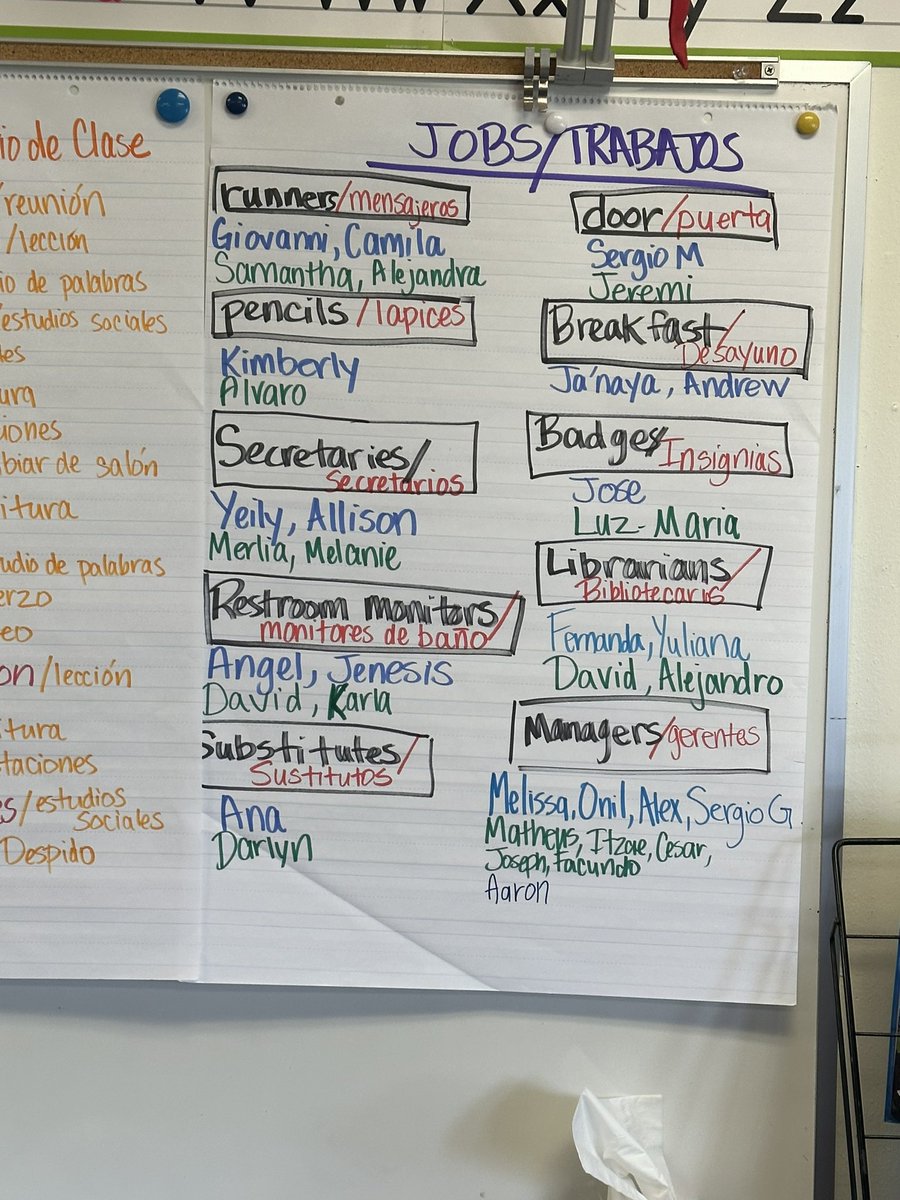 Xx Yy Zz
io de Clase
/reunión
/lección
io de palabras
estudios sociales
les
ura
iones
biar de salón
itura
udio de palabras
erzo
eo
on/lección
itura
taciones
es/estudios
sociales
Despido
JOBS/TRABAJOS
runners/mensajeros
Giovanni, Camila
Samantha, Alejandra
pencils/lapices
Kimberly
Alvaro
Secretaries/
Secretarios
Yeily, Allison
Merlia, Melanie
Restroom monitors/
monitores de baño
Angel, Jenesis
David, Karla
Substitutes/
Sustitutos
Ana
Darlyn
door/puerta
Sergio M
Jeremi
Breakfast/
Desayuno
Ja'naya, Andrew
Badges/Insignias
Jose
Luz-Maria
Librarians/
Bibliotecaris
Fernanda, Yuliana
David, Alejandro
Managers/gerentes
Melissa, Onil, Alex, Sergio G
Matheus, Itzae, Cesar,
Joseph, Facundo
Aaron